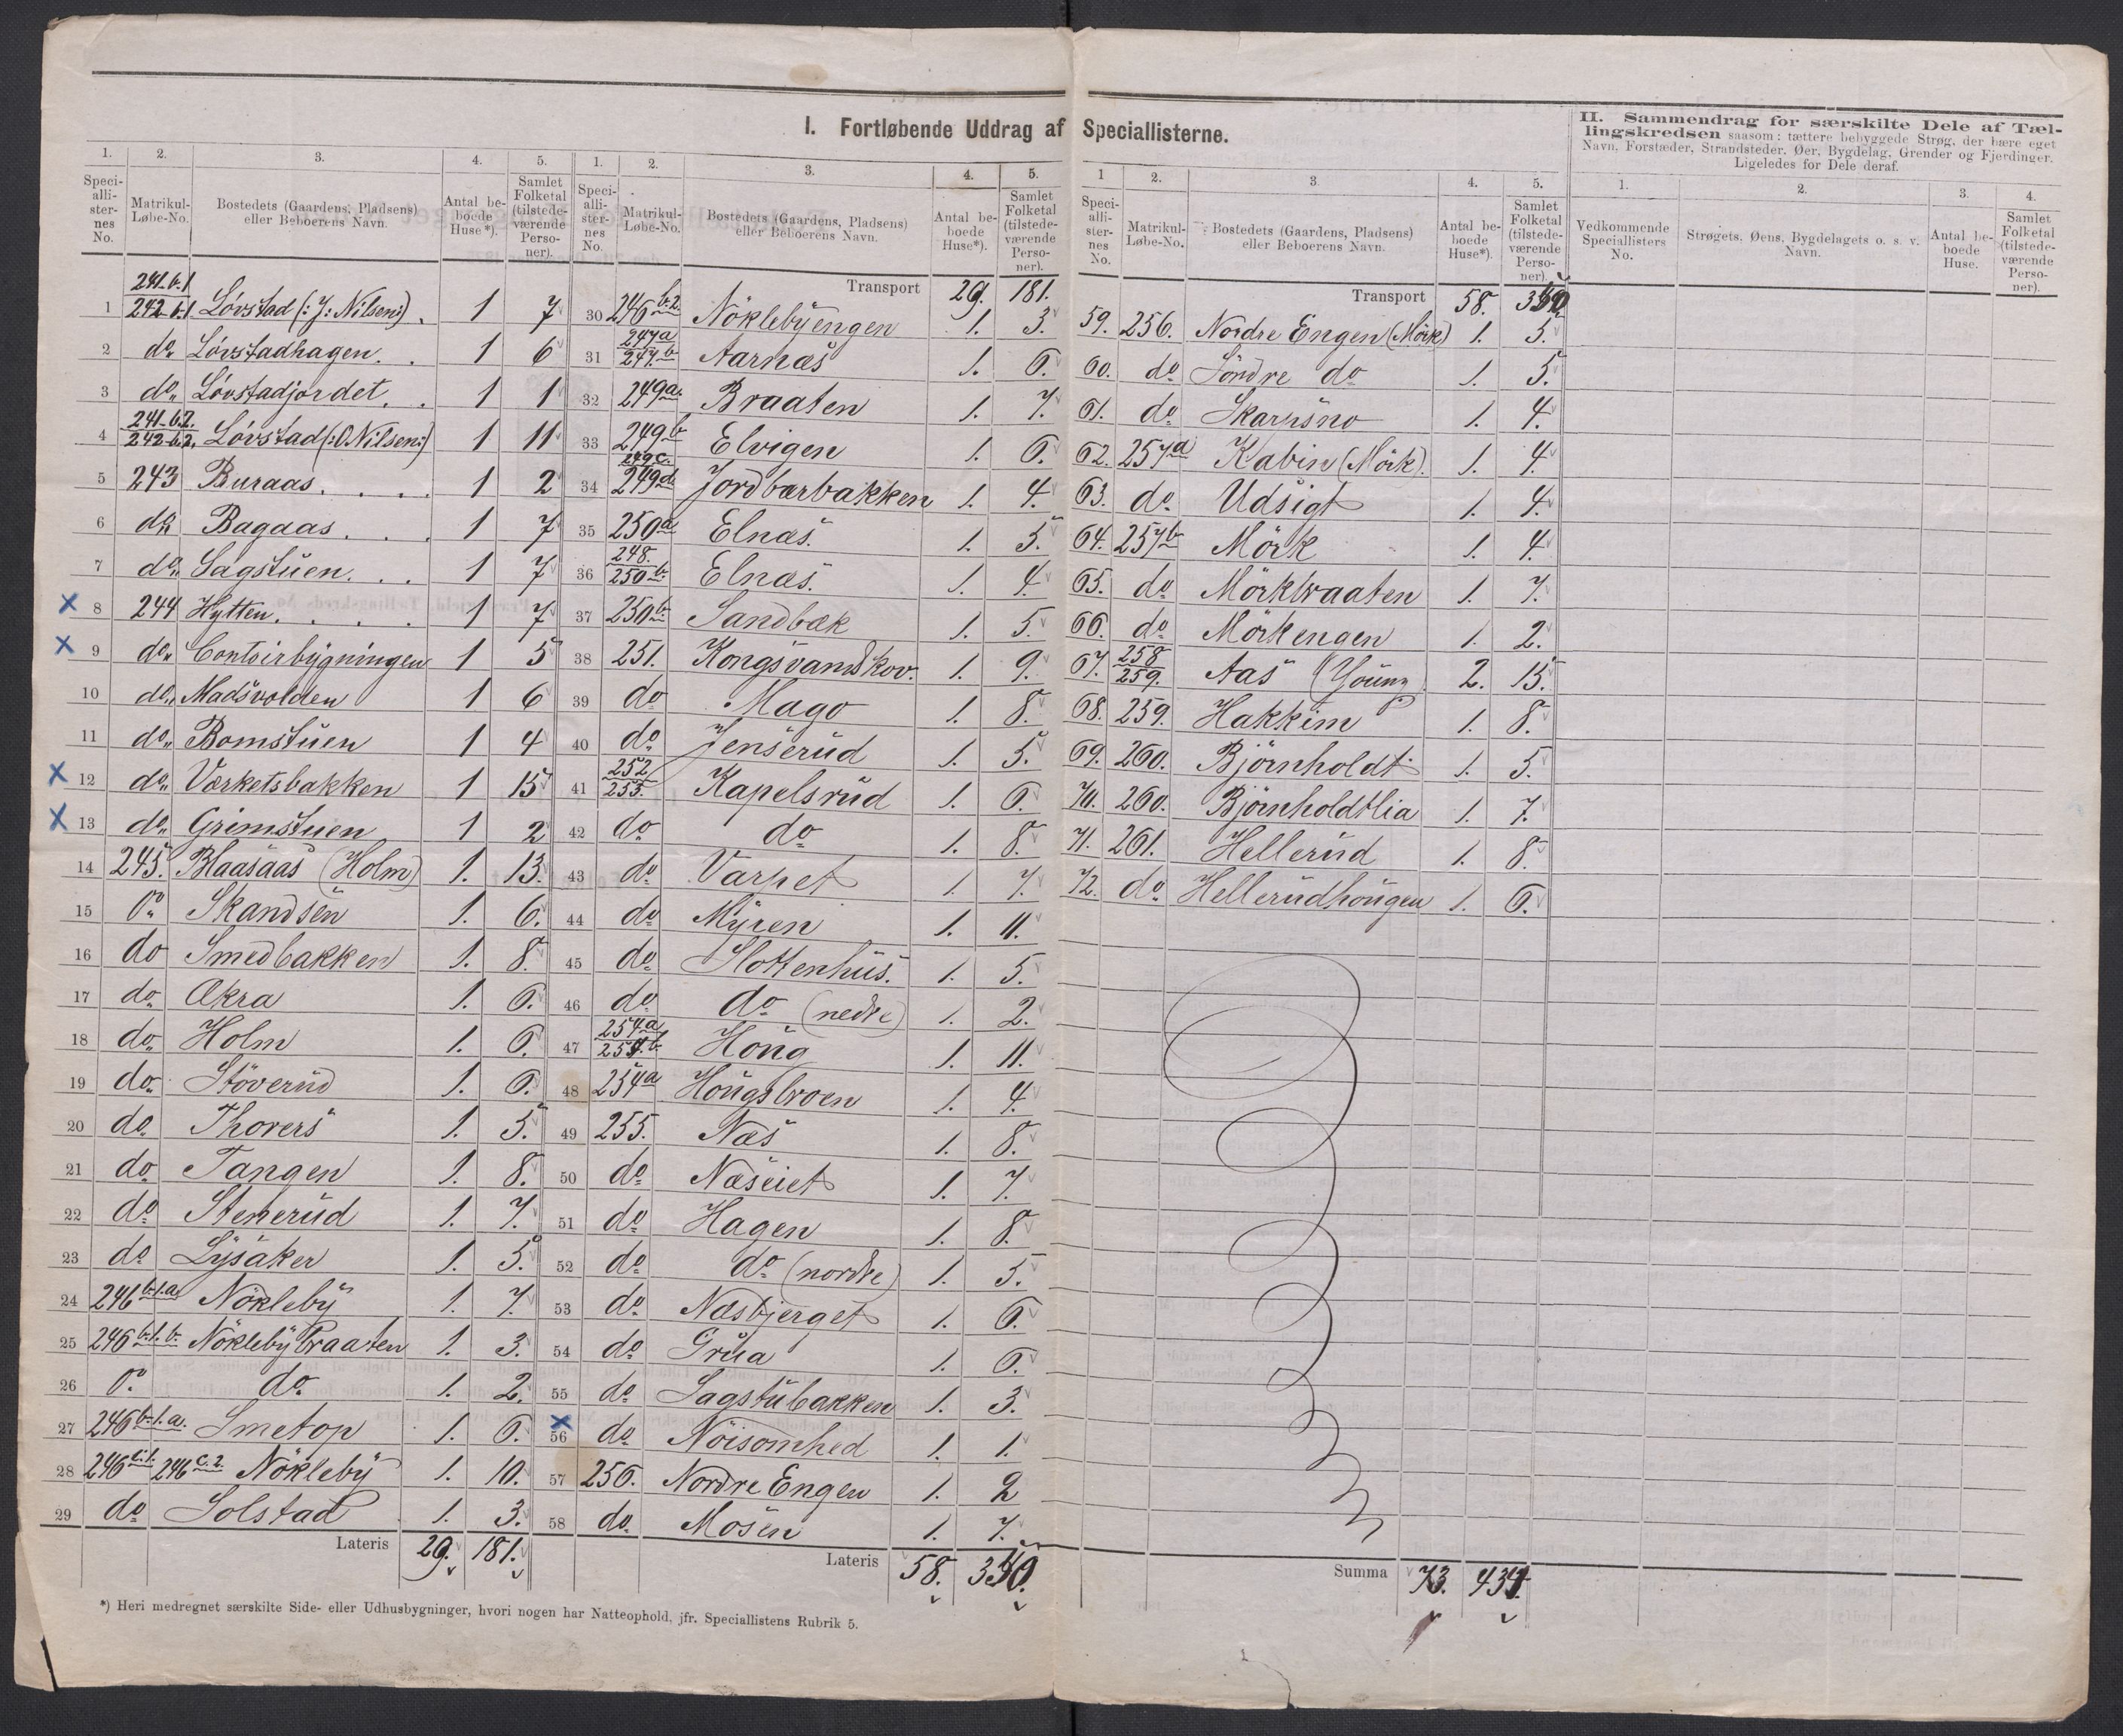 I. Fortløbende Uddrag af Speciallisterne.
1. 2. 3. 4. 5.
Speciallisternes No. Matrikul-Løbe-No. Bostedets (Gaardens, Pladsens) eller Beboerens Navn. Antal beboede Huse*). Samlet Folketal (tilstedeværende Personer).
1 241.b.1 242.b.1 Lövstad (: J: Nilsen:). 1 7
2 do Lövstadhagen. 1 6
3 do Lövstadjordet. 1 1
4 241.b.2. 242.b.2. Lövstad (: O Nilsen:) 1 11
5 243 Buraas. 1 2
6 do Bagaas. 1 7
7 do Sagstuen. 1 7
x 8 244 Hytten. 1 7
x 9 do Contoirbygningen 1 5
10 do Madsvolden 1 6
11 do Bomstuen 1 4
x 12 do Værketsbakken 1 15
x 13 do Grimstuen 1 2
14 245. Blaasaas (Holm) 1. 13.
15 Do Skandsen 1. 6.
16 do Smedbakken 1. 8.
17 do Økra 1. 6.
18 do Holm 1. 6.
19 do Stöverud 1. 6.
20 do Thorers 1. 5.
21 do Tangen 1. 8.
22 do Stenerud 1. 7.
23 do Lysaker 1. 5.
24 246 b.1.a. Nökleby 1. 7.
25 246 b.1.b. Nöklebybraaten 1. 3.
26 Do do 1. 2.
27 246 b.1.a. Smetop 1. 6.
28 246 c.1. 246 c.2. Nökleby 1. 10.
29 do Solstad 1. 3.
Lateris 29. 181.
1. 2. 3. 4. 5.
Speciallisternes No. Matrikul-Løbe-No. Bostedets (Gaardens, Pladsens) eller Beboerens Navn. Antal beboede Huse*). Samlet Folketal (tilstedeværende Personer).
Transport 29. 181.
30 246 b.2 Nöklebyengen 1. 3.
31 247a 247.b Aarnæs 1. 6.
32 249a. Braaten 1. 7.
33 249b Elvigen 1. 6.
34 249c. 249d Jordbærbakken 1. 4.
35 250a Elnæs. 1. 5.
36 248. 250b. Elnæs. 1. 4.
37 250b Sandbæk 1. 5.
38 251. Kongsvandskov. 1. 9.
39 do Mago 1. 8.
40 do Jenserud 1. 5.
41 252 253. Kapelsrud 1. 6.
42 do do 1. 8.
43 do Varpet 1. 7.
44 do Myren 1. 11.
45 do Slottenhus. 1. 5.
46 do do (nedre) 1. 2.
47 254a 254.b Höug 1. 11.
48 254a Höugsbroen 1. 4.
49 255. Næs 1. 8.
50 do Næseiet 1. 7.
51 do Hagen 1. 8.
52 do do (nordre) 1. 5.
53 do Næsbjerget 1. 6.
54 do Grua 1. 6.
55 do Sagstubakken 1. 3.
x 56 do Nöisomhed 1. 1.
57 256. Nordre Engen 1. 2
58 do Mosen 1. 7.
Lateris 58.
1 2. 3 4. 5.
Speciallisternes No. Matrikul-Løbe-No. Bostedets (Gaardens, Pladsens) eller Beboerens Navn. Antal beboede Huse*). Samlet Folketal (tilstedeværende Personer).
Transport 58.
59. 256. Nordre Engen (Mörk) 1. 5.
60. do Söndre do 1. 5.
61. do Skarpsno 1. 4.
62. 257a Kabin (Mörk). 1. 4.
63. do Udsigt 1. 4.
64. 257b Mörk 1. 4.
65. do Mörkbraaten 1. 7.
66. do Mörkengen 1. 2.
67. 258 259. Aas (Young) 2. 15.
68. 259. Hakkim 1. 8.
69. 260. Björnholdt 1. 5.
70. 260. Björnholdtlia 1. 7.
71. 261. Hellerud 1. 8.
72. do Hellerudhöugen 1. 6.
Summa 73.
II. Sammendrag for særskilte Dele af Tællingskredsen saasom: tættere bebyggede Strøg, der bære eget
Navn, Forstæder, Strandsteder, Øer, Bygdelag, Grender og Fjerdinger.
Ligeledes for Dele deraf.
1. 2. 3. 4.
Vedkommende Speciallisters No. Strøgets, Øens, Bygdelagets o. s. v. Navn. Antal beboede Huse. Samlet Folketal (tilstedeværende Personer).
*) Heri medregnet særskilte Side- eller Udhusbygninger, hvori nogen har Natteophold, jfr. Speciallistens Rubrik 5.